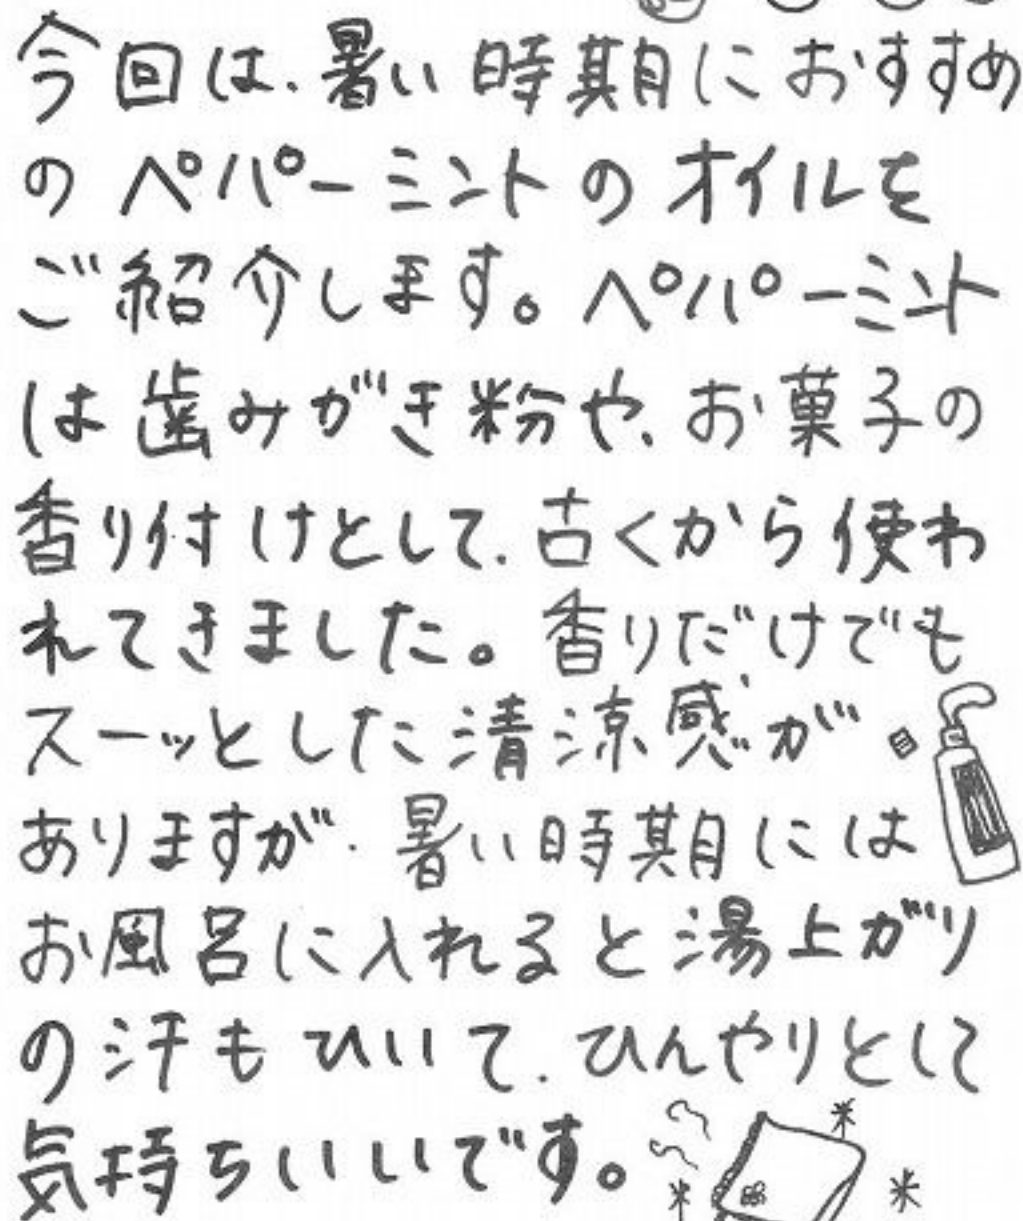 今回は、暑い時期におすすめ
のペパーミントのオイルを
ご紹介します。ペパーミント
は歯みがき粉や、お菓子の
香り付けとして、古くから使わ
れてきました。香りだけでも
スーッとした清涼感が
ありますが、暑い時期には
お風呂に入れると湯上がり
の汗もひいて、ひんやりとして
気持ちいいです。